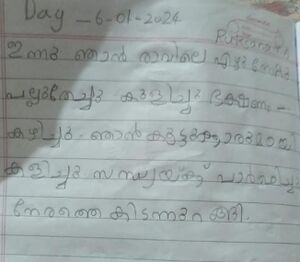 Day - 6-01-2024
ഇന്നു ഞാൻ രാവിലെ എഴുന്നേറ്റു
പല്ലുതേച്ചു കുളിച്ചു ഭക്ഷണം -
കഴിച്ചു. ഞാൻ കൂട്ടുക്കാരുമായി
കളിച്ചു സന്ധ്യയ്ക്ക് പ്രാർത്ഥിച്ചു
നേരത്തെ കിടന്നുറങ്ങി.